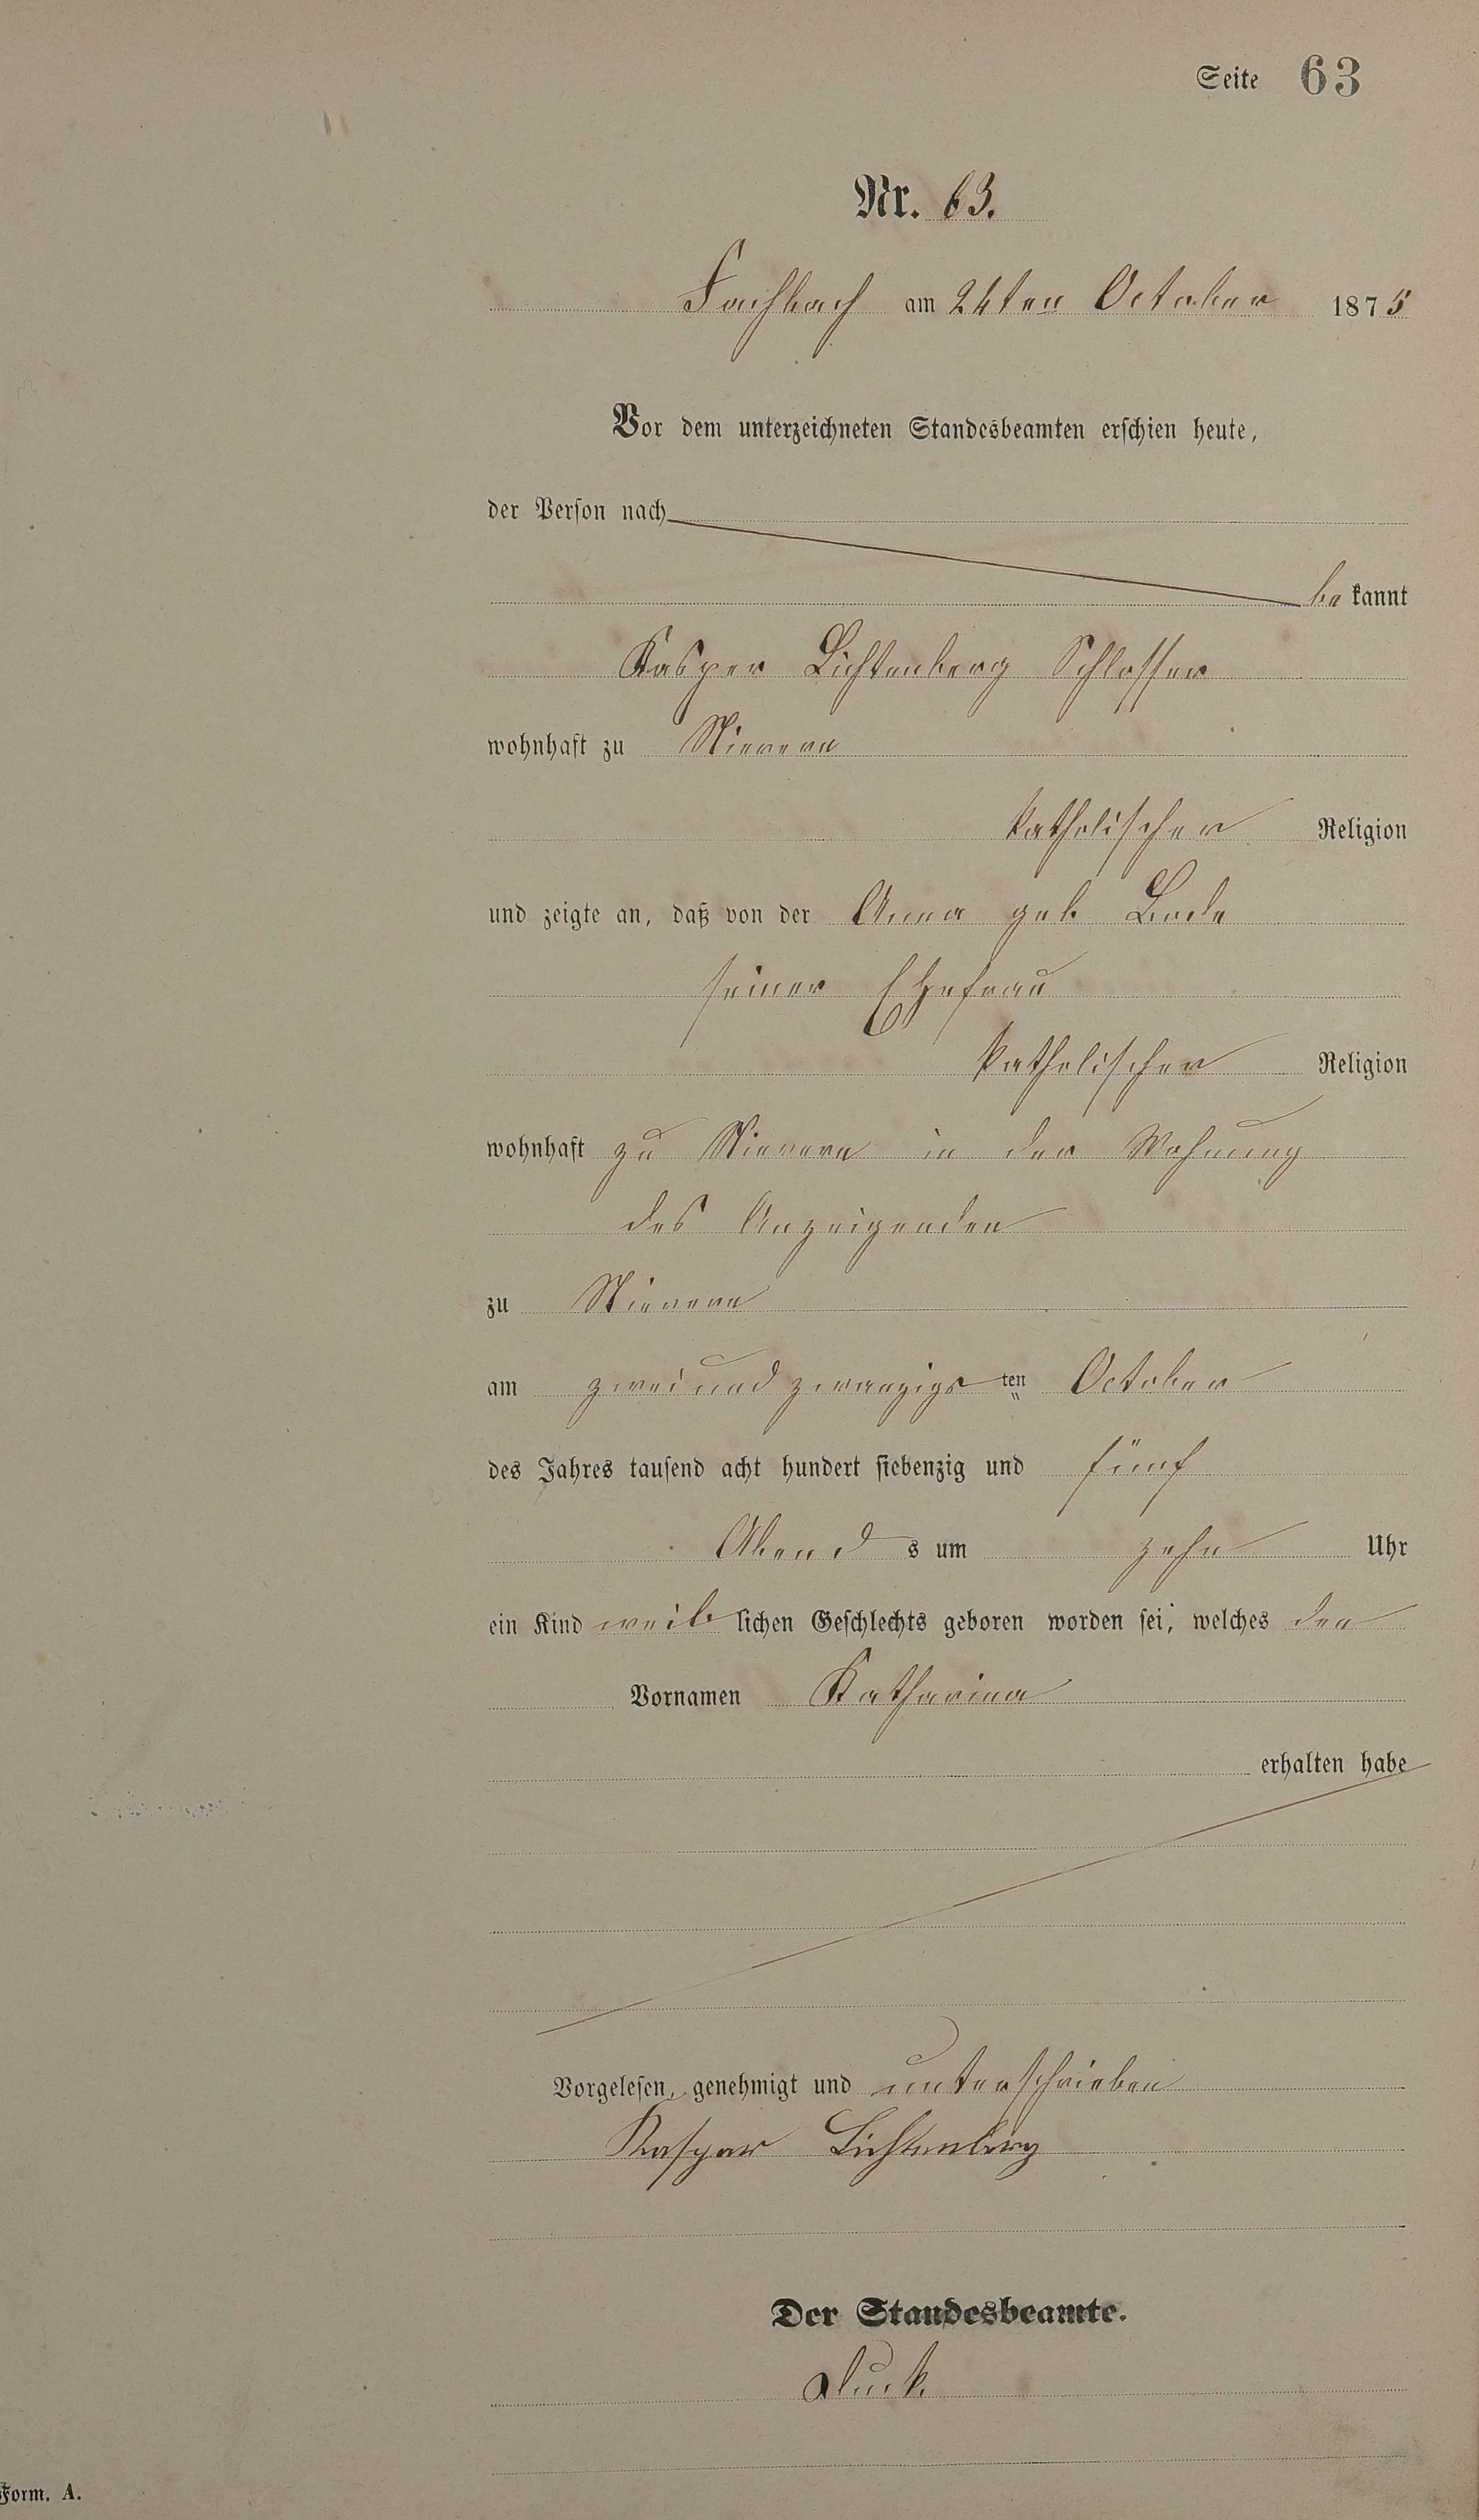 Seite 63
Nr. 63.
Fachbach am 24ten October 1875
Vor dem unterzeichneten Standesbeamten erschien heute,
der Person nach
bekannt
Kasper Lichtenberg Schlosser
wohnhaft zu Nievern
katholischer Religion
und zeigte an, daß von der Anna geb. Bode
seiner Ehefrau
katholischer Religion
wohnhaft zu Nievern in der Wohnung
des Anzeigenden
zu Nievern
am zwei und zwanzigsten October
des Jahres tausend acht hundert siebenzig und fünf
Abends um zehn Uhr
ein Kind weiblichen Geschlechts geboren worden sei, welches den
Vornamen Katharina
erhalten habe
Vorgelesen, genehmigt und unterschrieben
Kaspar Lichtenberg
Der Standesbeamte.
Form. A.